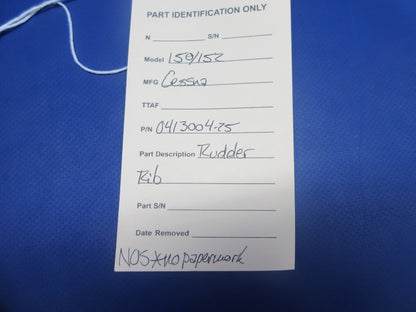 PART IDENTIFICATION ONLY
N S/N
Model 150/152
MFG Cessna
TTAF
P/N 0413004-25
Part Description Rudder
Rib
Part S/N
Date Removed
NOS*no paperwork